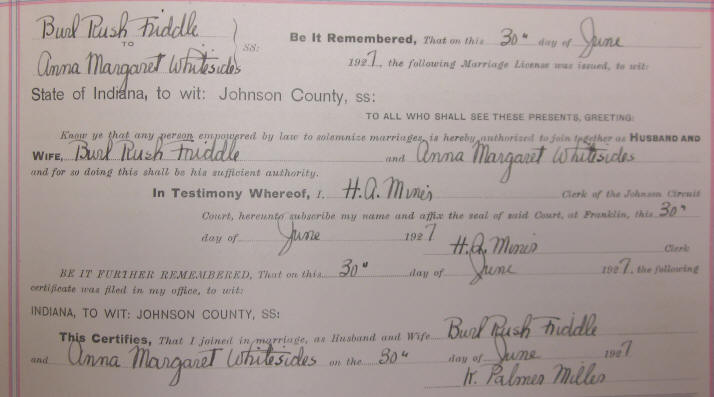 Burl Rush Friddle
TO
Anna Margaret Whitesides
SS:
Be It Remembered, That on this 30" day of June
1927, the following Marriage License was issued, to wit:
State of Indiana, to wit: Johnson County, ss:
TO ALL WHO SHALL SEE THESE PRESENTS, GREETING:
Know ye that any person empowered by law to solemnize marriages, is hereby authorized to join together as HUSBAND AND
WIFE, Burl Rush Friddle and Anna Margaret Whitesides
and for so doing this shall be his sufficient authority.
In Testimony Whereof, I, H.A. Mines Clerk of the Johnson Circuit
Court, hereunto subscribe my name and affix the seal of said Court, at Franklin, this 30"
day of June 1927
H.A. Mines Clerk
BE IT FURTHER REMEMBERED, That on this 30" day of June 1927, the following
certificate was filed in my office, to wit:
INDIANA, TO WIT: JOHNSON COUNTY, SS:
This Certifies, That I joined in marriage, as Husband and Wife Burl Rush Friddle
and Anna Margaret Whitesides on the 30" day of June 1927
Palmer Miller